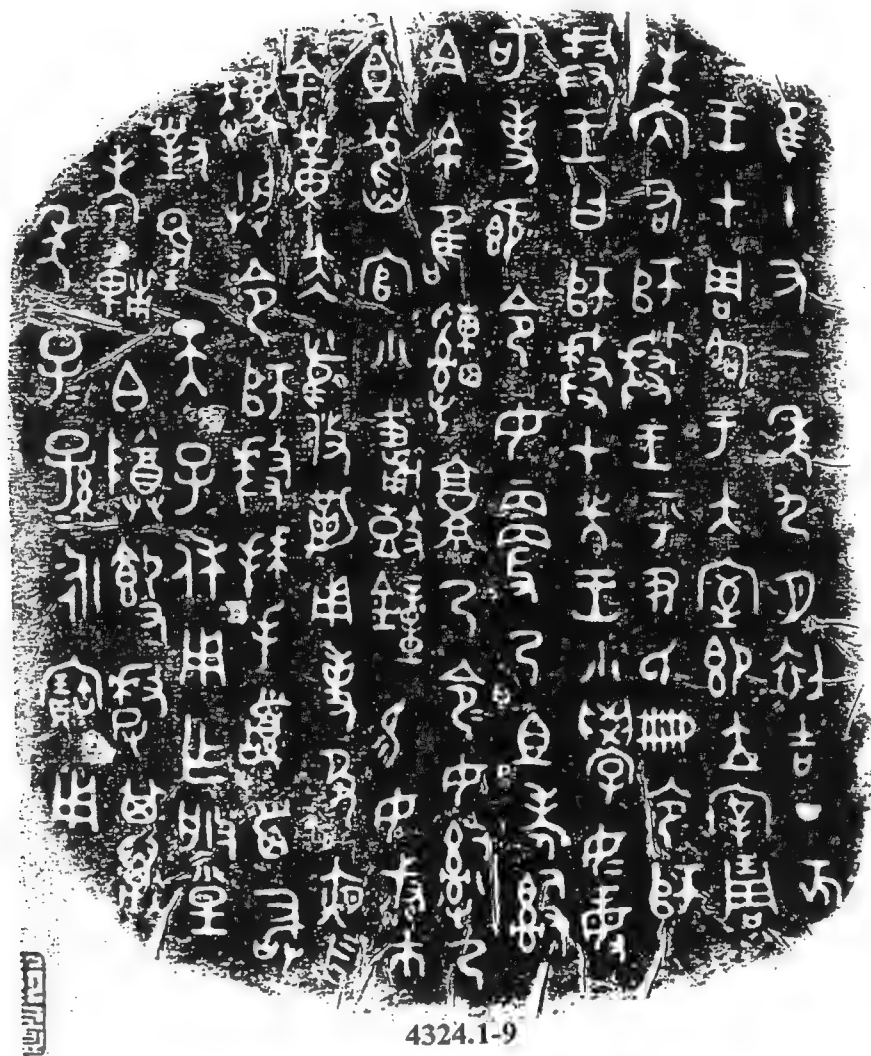 隹十又一年九月初吉丁
亥王才周各于大室即立宰琱
生內右師𠭰王乎尹氏冊令師
𠭰王曰師𠭰才昔先王小學女敏
可事既令女更乃且考𤔲
今余隹𤕌𩫨乃令令女𤔲乃
且舊官小輔眔鼓鐘易女叔巿
金黃赤舄攸勒用事敬夙
夜勿灋朕令師𠭰拜手𩒨首敢
對揚天子休用乍朕皇
考輔白尊𣪘𠭰其萬
年子孫永寶用
4324.1-9